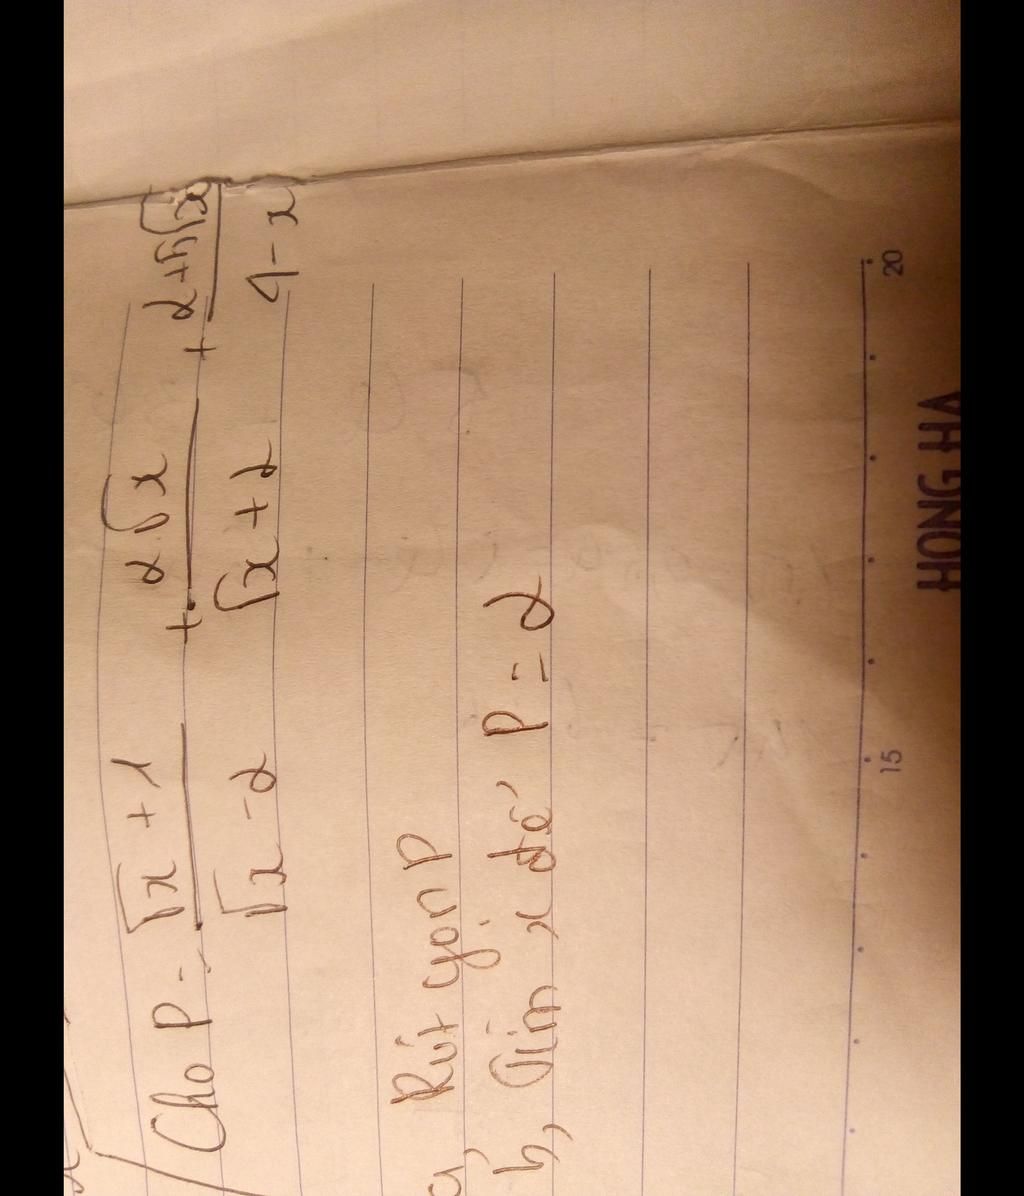 Cho P = (√x + 1)/(√x - 2) + (2√x)/(√x + 2) + (2+5√x)/(4-x)
a, Rút gọn P
b, Tìm x để P = 2
15 20
HONG HA